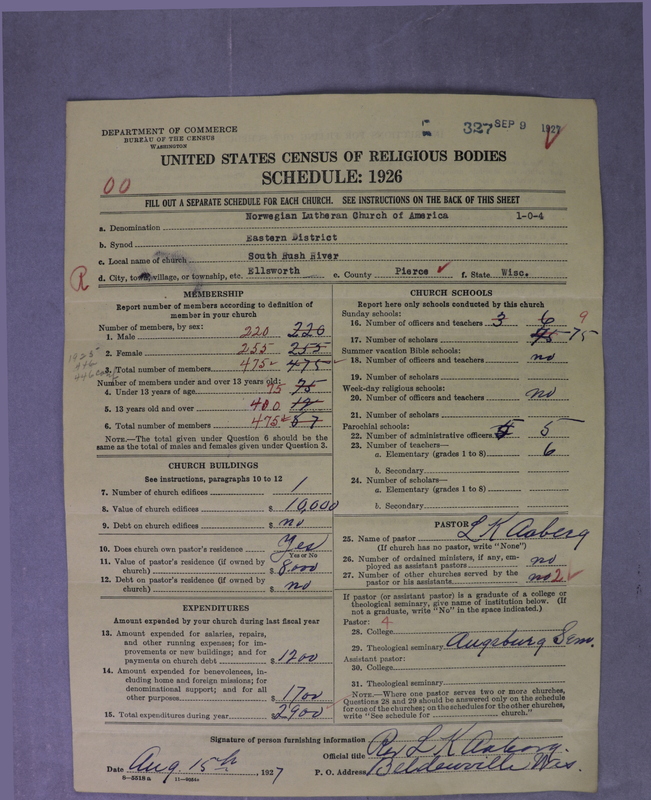 DEPARTMENT OF COMMERCE
BUREAU OF THE CENSUS
WASHINGTON
327 SEP 9 1927
UNITED STATES CENSUS OF RELIGIOUS BODIES
SCHEDULE: 1926
00
FILL OUT A SEPARATE SCHEDULE FOR EACH CHURCH. SEE INSTRUCTIONS ON THE BACK OF THIS SHEET
a. Denomination Norwegian Lutheran Church of America 1-0-4
b. Synod Eastern District
c. Local name of church South Rush River
R
d. City, town, village, or township, etc. Ellsworth e. County Pierce f. State Wisc.
MEMBERSHIP
Report number of members according to definition of
member in your church
Number of members, by sex:
1. Male 220 220
2. Female 255 255
3. Total number of members 475 475
Number of members under and over 13 years old:
4. Under 13 years of age 75 75
5. 13 years old and over 400
6. Total number of members 475
NOTE.—The total given under Question 6 should be
same as the total of males and females given under Question 3.
CHURCH BUILDINGS
See instructions, paragraphs 10 to 12
7. Number of church edifices 1
8. Value of church edifices $ 10,000
9. Debt on church edifices $ no
10. Does church own pastor's residence Yes
Yes or No
11. Value of pastor's residence (if owned by
church) $ 8,000
12. Debt on pastor's residence (if owned by
church) $ no
EXPENDITURES
Amount expended by your church during last fiscal year
13. Amount expended for salaries, repairs,
and other running expenses; for im-
provements or new buildings; and for
payments on church debt $ 1200
14. Amount expended for benevolences, in-
cluding home and foreign missions; for
denominational support; and for all
other purposes $ 1700
15. Total expenditures during year $ 2900
CHURCH SCHOOLS
Report here only schools conducted by this church
Sunday schools:
16. Number of officers and teachers 3 6 9
17. Number of scholars 75
Summer vacation Bible schools:
18. Number of officers and teachers no
19. Number of scholars
Week-day religious schools:
20. Number of officers and teachers no
21. Number of scholars
Parochial schools:
22. Number of administrative officers 5
23. Number of teachers—
a. Elementary (grades 1 to 8) 6
b. Secondary
24. Number of scholars—
a. Elementary (grades 1 to 8)
b. Secondary
PASTOR
25. Name of pastor L K Aaberg
(If church has no pastor, write "None")
26. Number of ordained ministers, if any, em-
ployed as assistant pastors no
27. Number of other churches served by the
pastor or his assistants no 2
If pastor (or assistant pastor) is a graduate of a college or
theological seminary, give name of institution below. (If
not a graduate, write "No" in the space indicated.)
Pastor: 4
28. College
29. Theological seminary Augsburg Sem.
Assistant pastor:
30. College
31. Theological seminary
NOTE.—Where one pastor serves two or more churches,
Questions 28 and 29 should be answered only on the schedule
for one of the churches; on the schedules for the other churches,
write "See schedule for church."
Signature of person furnishing information Rev L K Aaberg.
Official title
Date Aug. 15th, 1927 P. O. Address Beldenville Wis.
8-5518 a